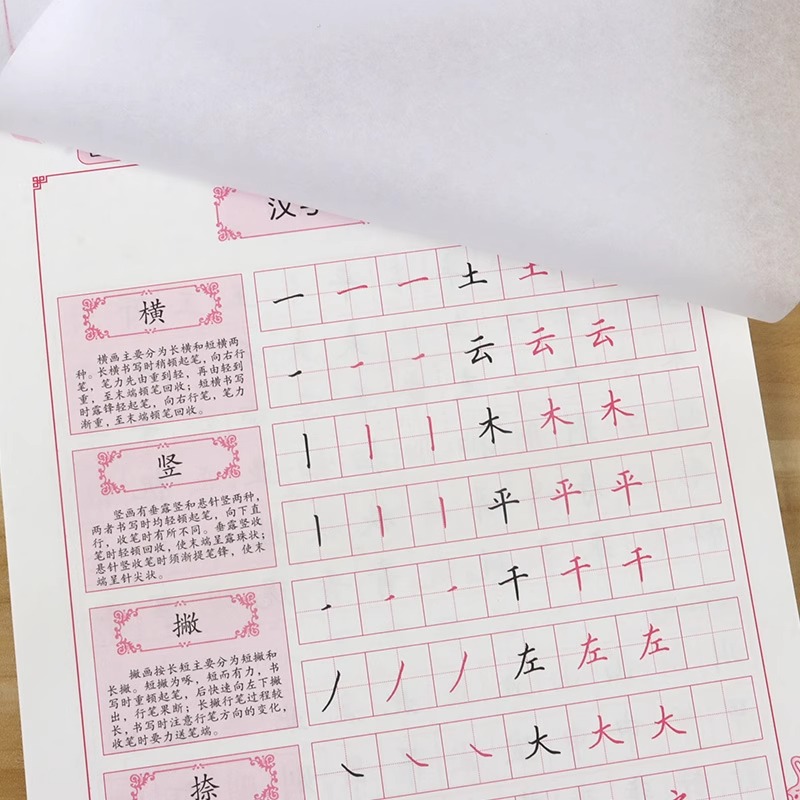 汉
横
横画主要分为长横和短横两
种。长横书写时稍顿起笔，向右行
笔，笔力先由重到轻，再由轻到
重，至末端顿笔回收；短横书写
时露锋轻起笔，向右行笔，笔力
渐重，至末端顿笔回收。
一 一 一 土 土
一 一 一 云 云 云
竖
竖画有垂露竖和悬针竖两种，
两者书写时均轻顿起笔，向下直
行，收笔时有所不同。垂露竖收
笔时轻顿回收，使末端呈露珠状；
悬针竖收笔时须渐提笔锋，使末
端呈针尖状。
丨 丨 丨 木 木 木
丨 丨 丨 平 平 平
撇
撇画按长短主要分为短撇和
长撇。短撇为啄，短而有力，书
写时重顿起笔，后快速向左下撇
出，行笔果断；长撇行笔过程较
长，书写时注意行笔方向的变化，
收笔时要力送笔端。
㇒ ㇒ ㇒ 千 千 千
丿 丿 丿 左 左 左
捺
㇏ ㇏ ㇏ 大 大 大